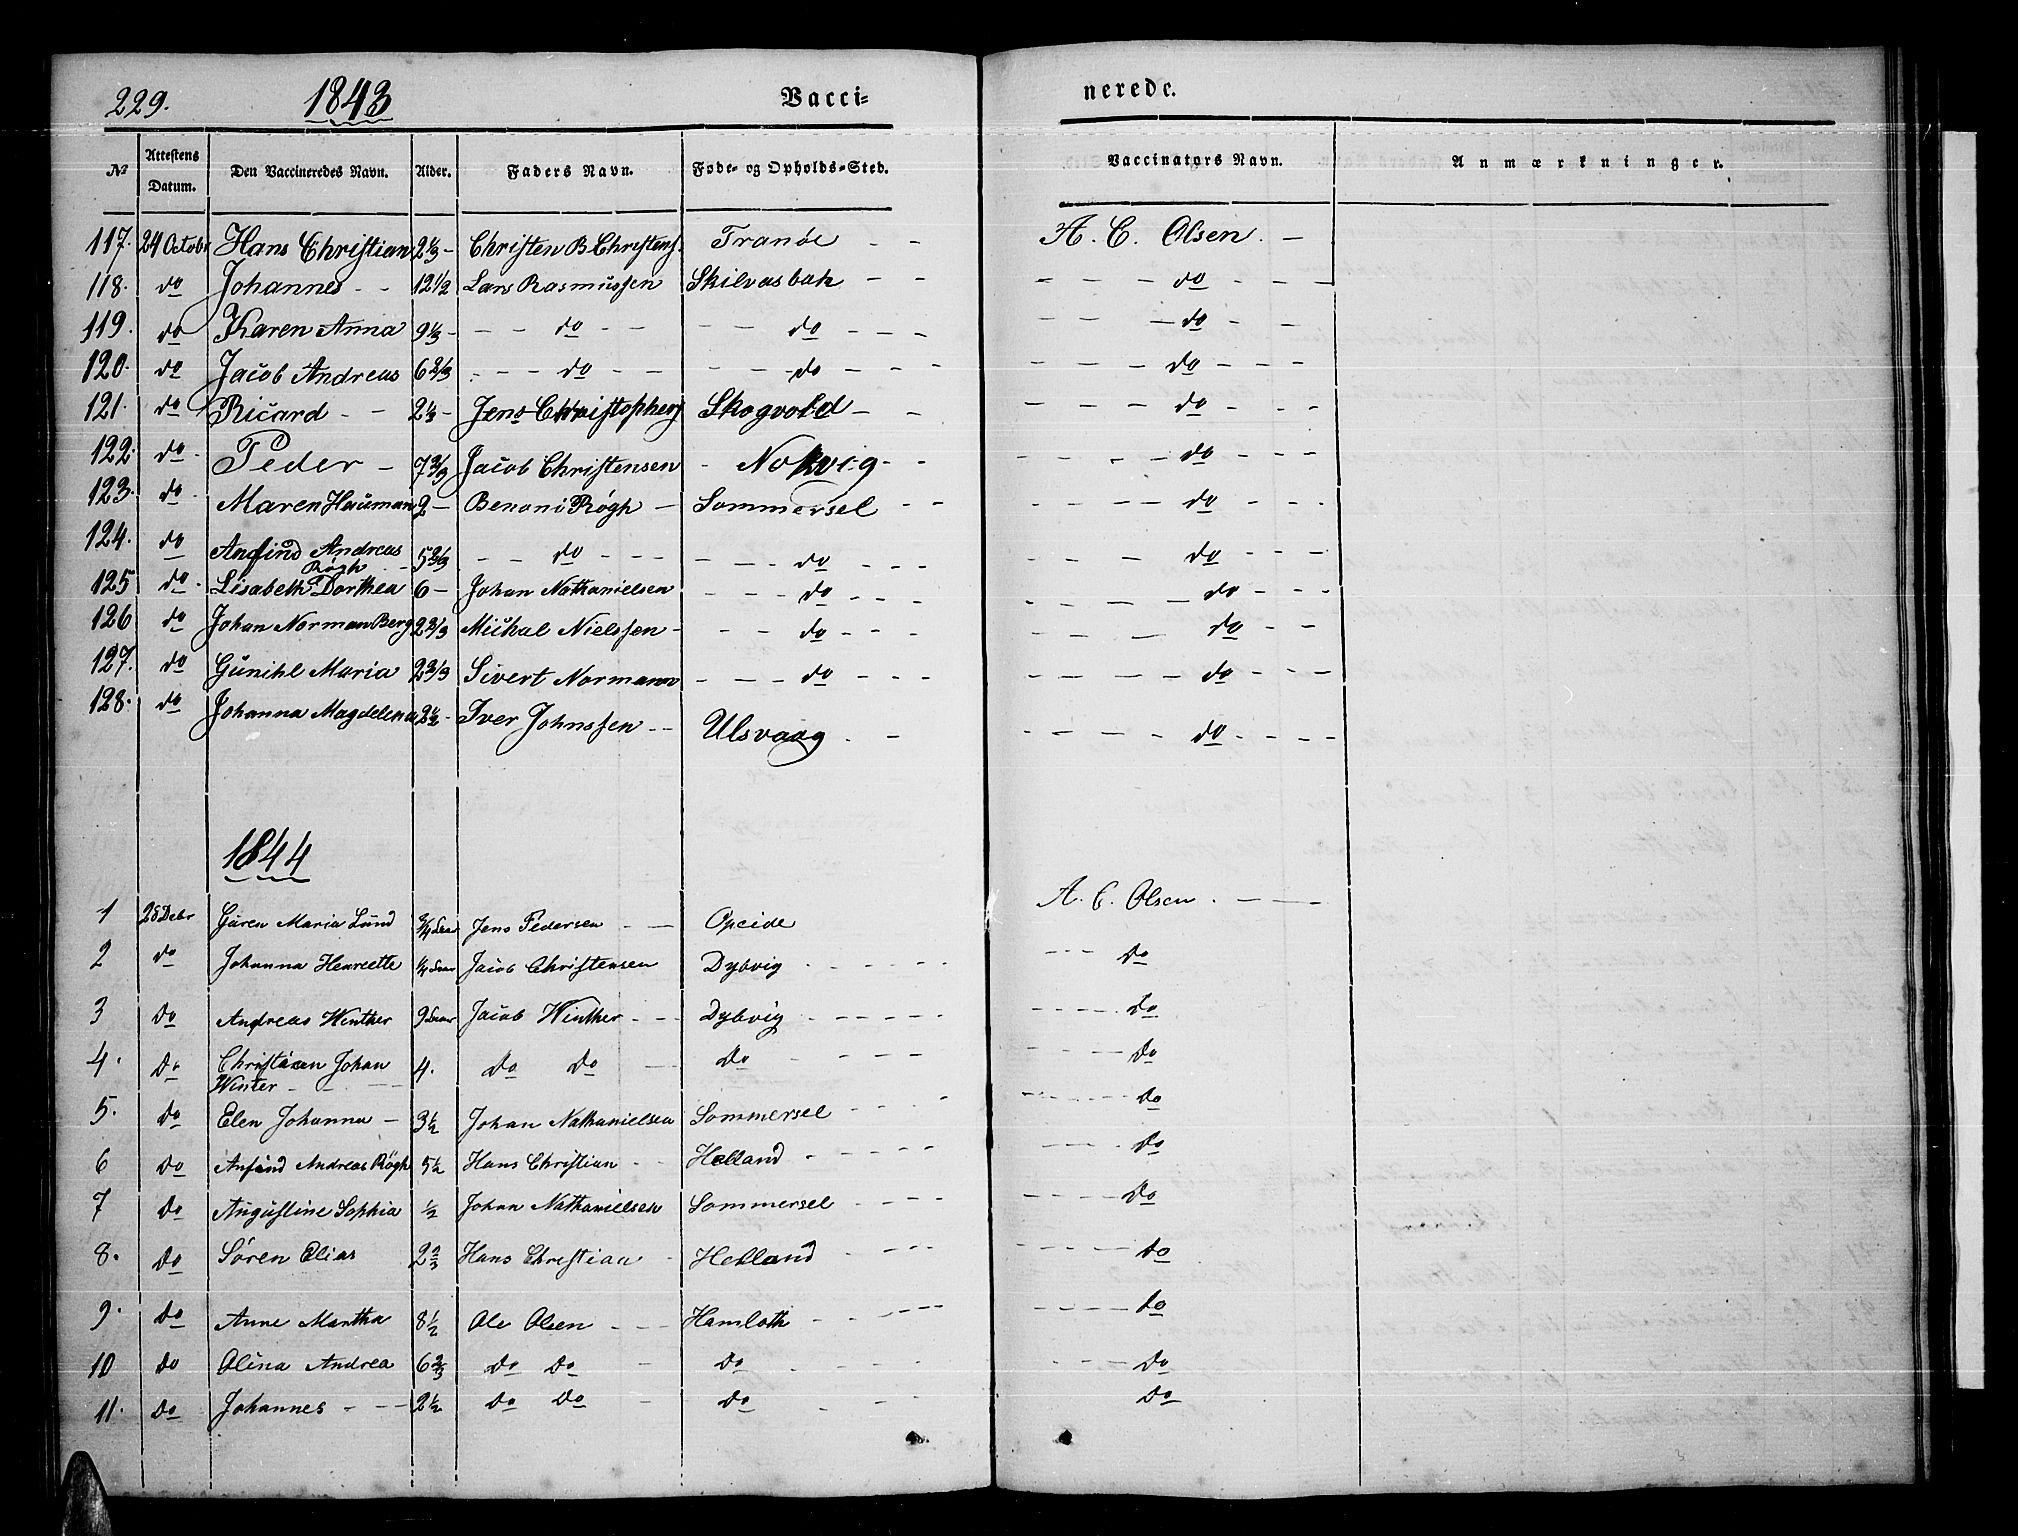 229. 1843 Vacci= nerede.
No Attestens Datum. Den Vaccineredes Navn. Alder. Faders Navn. Føde- og Opholds-Sted. Vaccinators Navn. Anmærkninger.
117. 24 Octobr Hans Christian 2 1/3 - Christen B. Christens. Tranöe - - A. C. Olsen. -
118. do Johannes - - 12 1/2 Lars Rasmussen Skilvasbak - - - - - - do - - - -
119. do Karen Anna 9 1/3 - - - do - - - - do - - - - - - do - -
120. do Jacob Andreas 6 2/3 - - - do - - - - - do - - - - - - do - - -
121. do Ricard - - 2 1/3 - Jens Christophers Skogvold - - - - - - do - - -
122. do - Peder - 7 2/3 Jacob Christensen - Nokvig - - - - - - do - - -
123. do - Maren Hauman 2 - Benoni Røgh - Sommersel - - - - - - do - - -
124. do Anfind Andreas Røgh - 5 2/3 - - do - - - - - - do - - - - - - - do - - - -
125 do - Lisabeth Dorthea 6 - Johan Nathanielsen - - - do - - - - - - - do - - -
126 do Johan Norman Berg 2 2/3 Michal Nielssen - - - do - - - - - - do - -
127. do Gunihl Maria 2 2/3 Sivert Normann - - - do - - - - - - - do - - -
128. do Johanna Magdelena 2 1/2 - Iver Johnssen - - Ulsvaag - - - - - - do - - - -
1844
1 28 Debr Garen Maria Lund 3/4 Jens Pedersen - - Opeide A. C. Olsen - - -
2 do Johanna Henreette 1/4 Jacob Christensen Dybvig - - - - - - - - do
3 Do Andreas Winther 9 Jacob Winther - - - Dybvig - - - - - - - - - do
4. Do Christian Johan Winter - - - 4. Do Do - - Do - - - - - - - - do
5. Do Elen Johanna - 3 1/2 Johan Nathanielsen Sommersel - - - - - - - - do
6 Do Anfind Andreas Røgh 5 1/2 Hans Christian - - Helland - - - - - - - - do
7 Do Augustine Sophia 1/2 Johan Nathanielsen Sommersel - - - - - - - - Do
8. Do Sören Elias 2 2/3 Hans Christian - Helland - - - - - - - - do
9. Do Anne Martha 8 1/2 Ole Olsen - - - Hamloth - - - - - - - - - do
10 Do Olina Andrea 6 2/3 Do Do - Do - - - - - - - Do
11. Do Johannes - - - 2 1/2 Do Do - Do - - - Do